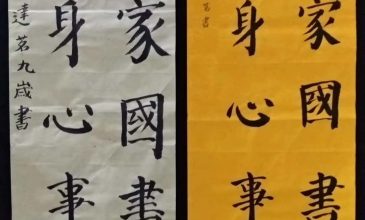 家國書
身心事
達茗九歲書
家國書
身心事
書